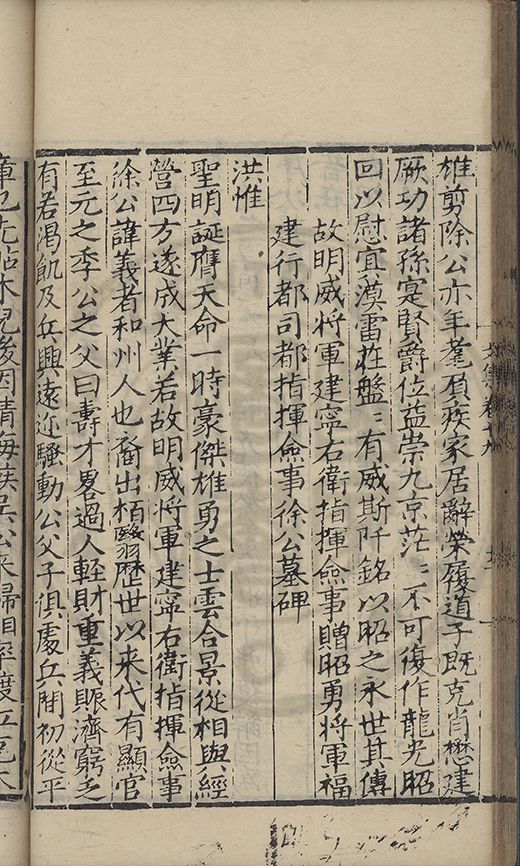 雄剪除公亦年耄屓疾家居辭榮履道子既克肖懋建
厥功諸孫寔賢爵位益崇九京茫〻不可復作龍光昭
回以慰宜漠雷拄盤〻有威斯阡銘以昭之永世其傳
故明威將軍建寧右衛指揮僉事贈昭勇將軍福
建行都司都指揮僉事徐公墓碑
洪惟
聖明誕膺天命一時豪傑雄勇之士雲合景從相與經
營四方遂成大業若故明威將軍建寧右衛指揮僉事
徐公諱義者和州人也裔出栢翳歷世以来代有顯官
至元之季公之父曰壽才畧過人輕財重義賑濟窮乏
有若渴飢及兵興遠近騷動公父子俱處兵間初從平
章